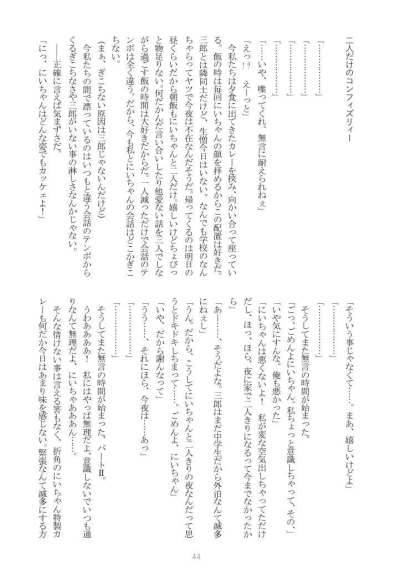 二人だけのコンフィズリー
「…………」
「…………」
「…………」
「……いや、喋ってくれ。無言に耐えられねぇ」
「えっ!?　えーっと」
　今私たちは夕食に出てきたカレーを挟み、向かい合って座ってい
る。飯の時は毎回にいちゃんの顔を拝めるからこの配置は好きだ。
三郎とは隣同士だけど、生憎今日はいない。なんでも学校のなん
ちゃらってヤツで今夜は不在なんだそうだ。帰ってくるのは明日の
昼くらいだから朝飯もにいちゃんと二人だけ。嬉しいけどちょびっ
と物足りない。何だかんだ言い合いしたり他愛ない話を三人でしな
がら過ごす飯の時間は大好きだからだ。一人減っただけで会話のテ
ンポは全く違う。だから、今も私とにいちゃんの会話はどこかぎこ
ちない。
(まぁ、ぎこちない原因は三郎じゃないんだけど)
　今私たちの間で漂っているのはいつもと違う会話のテンポから
くるぎこちなさや三郎がいない事の淋しさなんかじゃない。
　――正確に言えば気まずさだ。
「にっ、にいちゃんはどんな姿でもカッケェよ！」
「そういう事じゃなくて……。まあ、嬉しいけどよ」
「…………」
「…………」
　そうしてまた無言の時間が始まった。
「ごっ、ごめんよにいちゃん。私ちょっと意識しちゃって、その、」
「いや気にすんな。俺も悪かった」
「にいちゃんは悪くないよ！　私が変な空気出しちゃってただけ
だし。ほっ、ほら、夜に家で二人きりになるって今までなかったか
ら」
「あー……、そうだよな。三郎はまだ中学生だから外泊なんて滅多
にねぇし」
「うん。だから、こうしてにいちゃんと二人きりの夜なんだって思
うとドキドキしちまって……。ごめんよ、にいちゃん」
「いや、だから謝んなって」
「うう……、それにほら、今夜は……あっ」
「…………」
「…………」
　そうしてまた無言の時間が始まった。パートⅡ。
　うわああああ！　私にはやっぱ無理だよ。意識しないでいつも通
りなんて無理だよ、にいちゃああああん……。
　そんな情けない事は言える筈もなく、折角のにいちゃん特製カ
レーも何だか今日はあまり味を感じない。緊張なんて滅多にする方
44